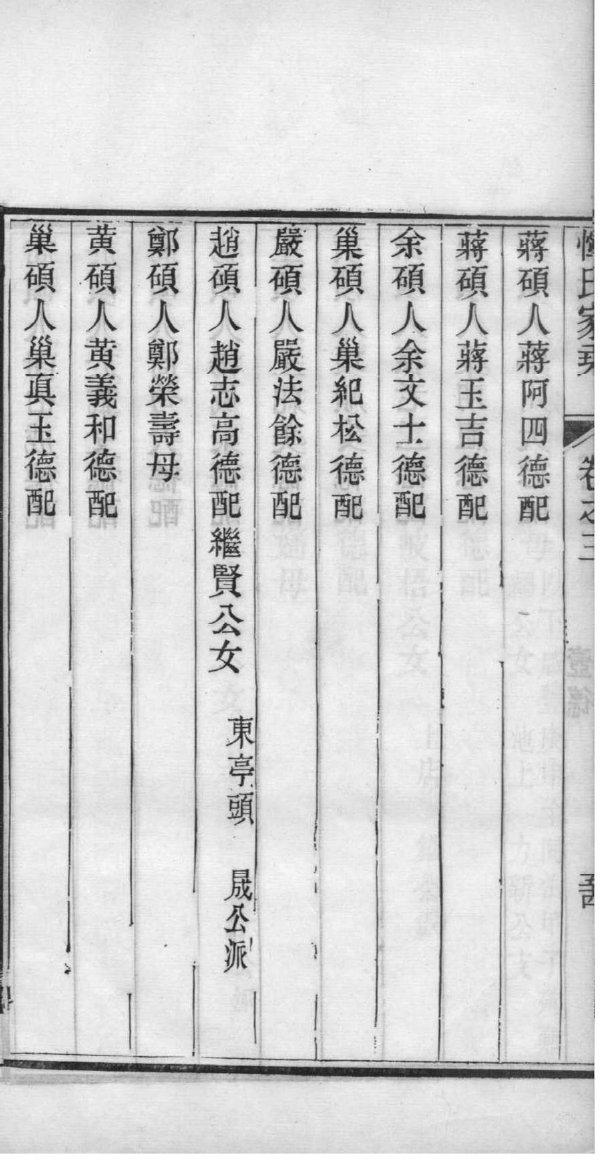 氏家
卷之三
蔣碩人蔣阿四德配
蔣碩人蔣玉吉德配
余碩人余文士德配
巢碩人巢紀松德配
嚴碩人嚴法餘德配
趙碩人趙志高德配繼賢公女 東亭頭 晟公派
鄭碩人鄭榮壽母
黃碩人黃義和德配
巢碩人巢真玉德配